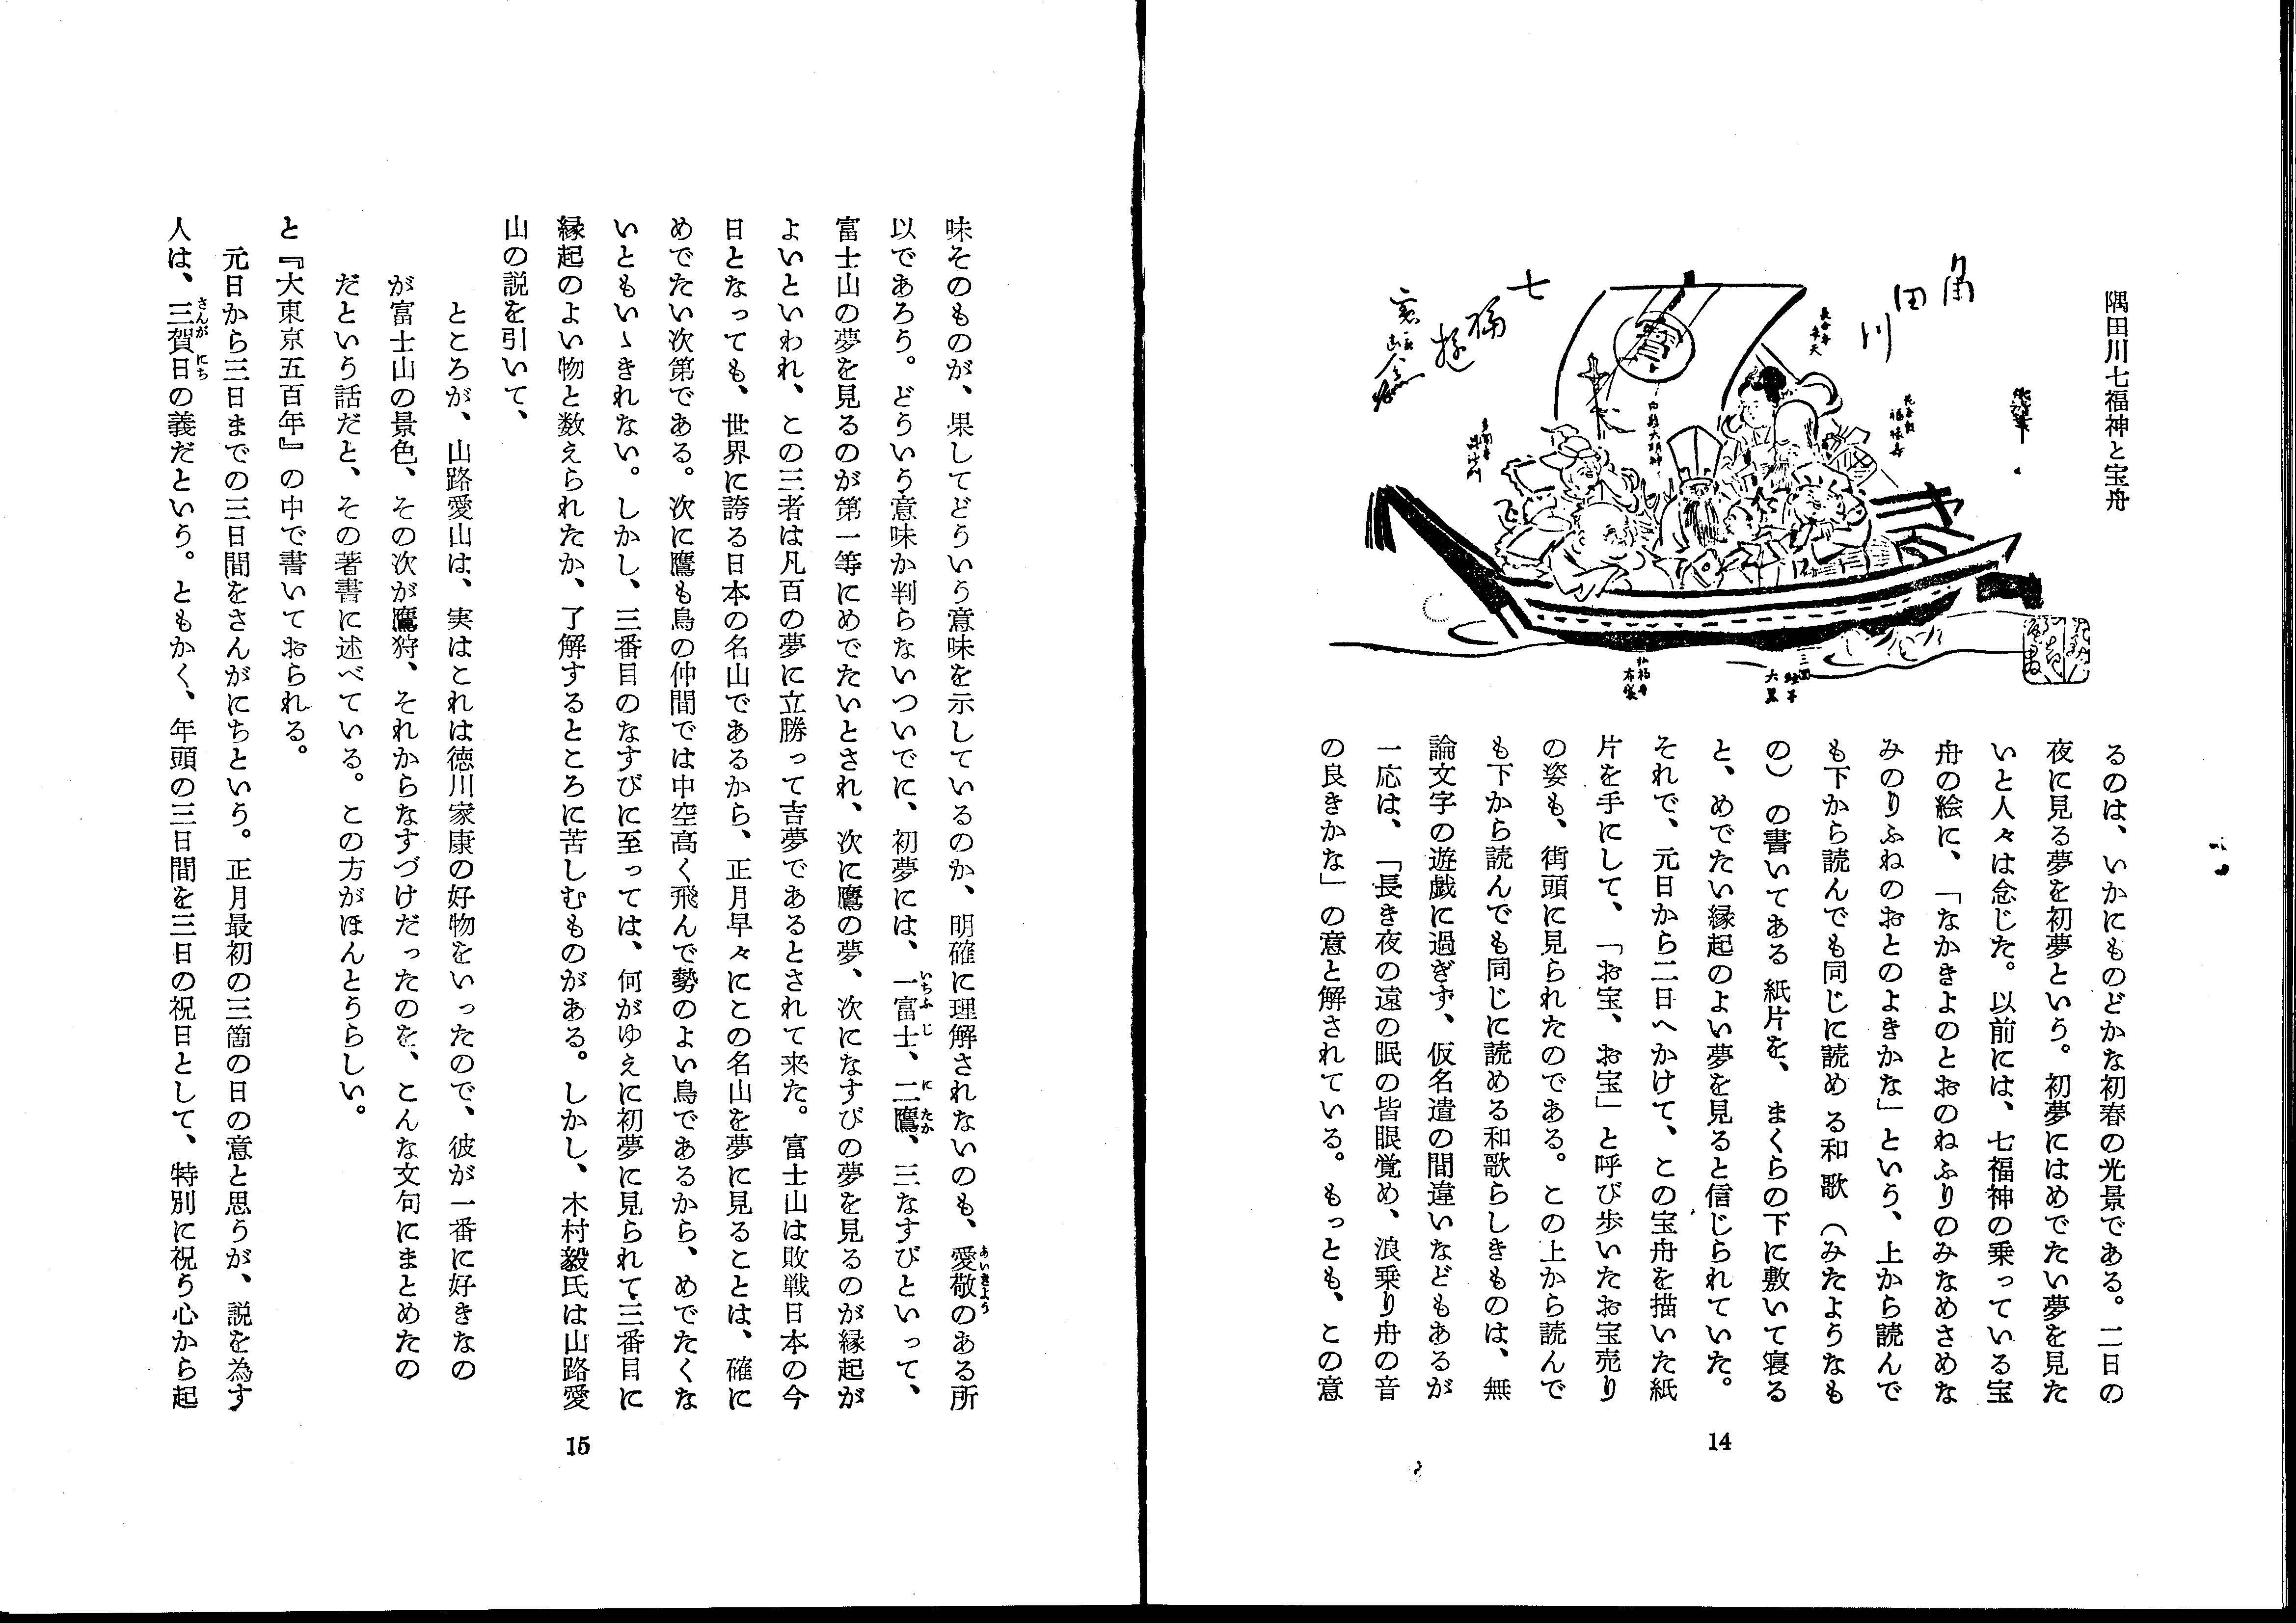 隅田川七福神と宝舟
角田川
七福遊
長命寺
弁天
花屋敷
福禄寿
白髭大明神
多聞寺
毘沙門
弘福寺
布袋
三囲
恵比寿
大黒
るのは、いかにものどかな初春の光景である。二日の
夜に見る夢を初夢という。初夢にはめでたい夢を見た
いと人々は念じた。以前には、七福神の乗っている宝
舟の絵に、「なかきよのとおのねふりのみなめさめな
みのりふねのおとのよきかな」という、上から読んで
も下から読んでも同じに読める和歌（みたようなも
の）の書いてある紙片を、まくらの下に敷いて寝る
と、めでたい縁起のよい夢を見ると信じられていた。
それで、元日から二日へかけて、この宝舟を描いた紙
片を手にして、「お宝、お宝」と呼び歩いたお宝売り
の姿も、街頭に見られたのである。この上から読んで
も下から読んでも同じに読める和歌らしきものは、無
論文字の遊戯に過ぎず、仮名遣の間違いなどもあるが
一応は、「長き夜の遠の眠の皆眼覚め、浪乗り舟の音
の良きかな」の意と解されている。もっとも、この意
14
味そのものが、果してどういう意味を示しているのか、明確に理解されないのも、愛敬のある所
あいきよう
以であろう。どういう意味か判らないついでに、初夢には、一富士、二鷹、三なすびといって、
いちふじ
にたか
富士山の夢を見るのが第一等にめでたいとされ、次に鷹の夢、次になすびの夢を見るのが縁起が
よいといわれ、この三者は凡百の夢に立勝って吉夢であるとされて来た。富士山は敗戦日本の今
日となっても、世界に誇る日本の名山であるから、正月早々にこの名山を夢に見ることは、確に
めでたい次第である。次に鷹も鳥の仲間では中空高く飛んで勢のよい鳥であるから、めでたくな
いともいゝきれない。しかし、三番目のなすびに至っては、何がゆえに初夢に見られて三番目に
縁起のよい物と数えられたか、了解するところに苦しむものがある。しかし、木村毅氏は山路愛
山の説を引いて、
ところが、山路愛山は、実はこれは徳川家康の好物をいったので、彼が一番に好きなの
が富士山の景色、その次が鷹狩、それからなすづけだったのを、こんな文句にまとめたの
だという話だと、その著書に述べている。この方がほんとうらしい。
と『大東京五百年』の中で書いておられる。
元日から三日までの三日間をさんがにちという。正月最初の三箇の日の意と思うが、説を為す
人は、三賀日の義だという。ともかく、年頭の三日間を三日の祝日として、特別に祝う心から起
さんがにち
15